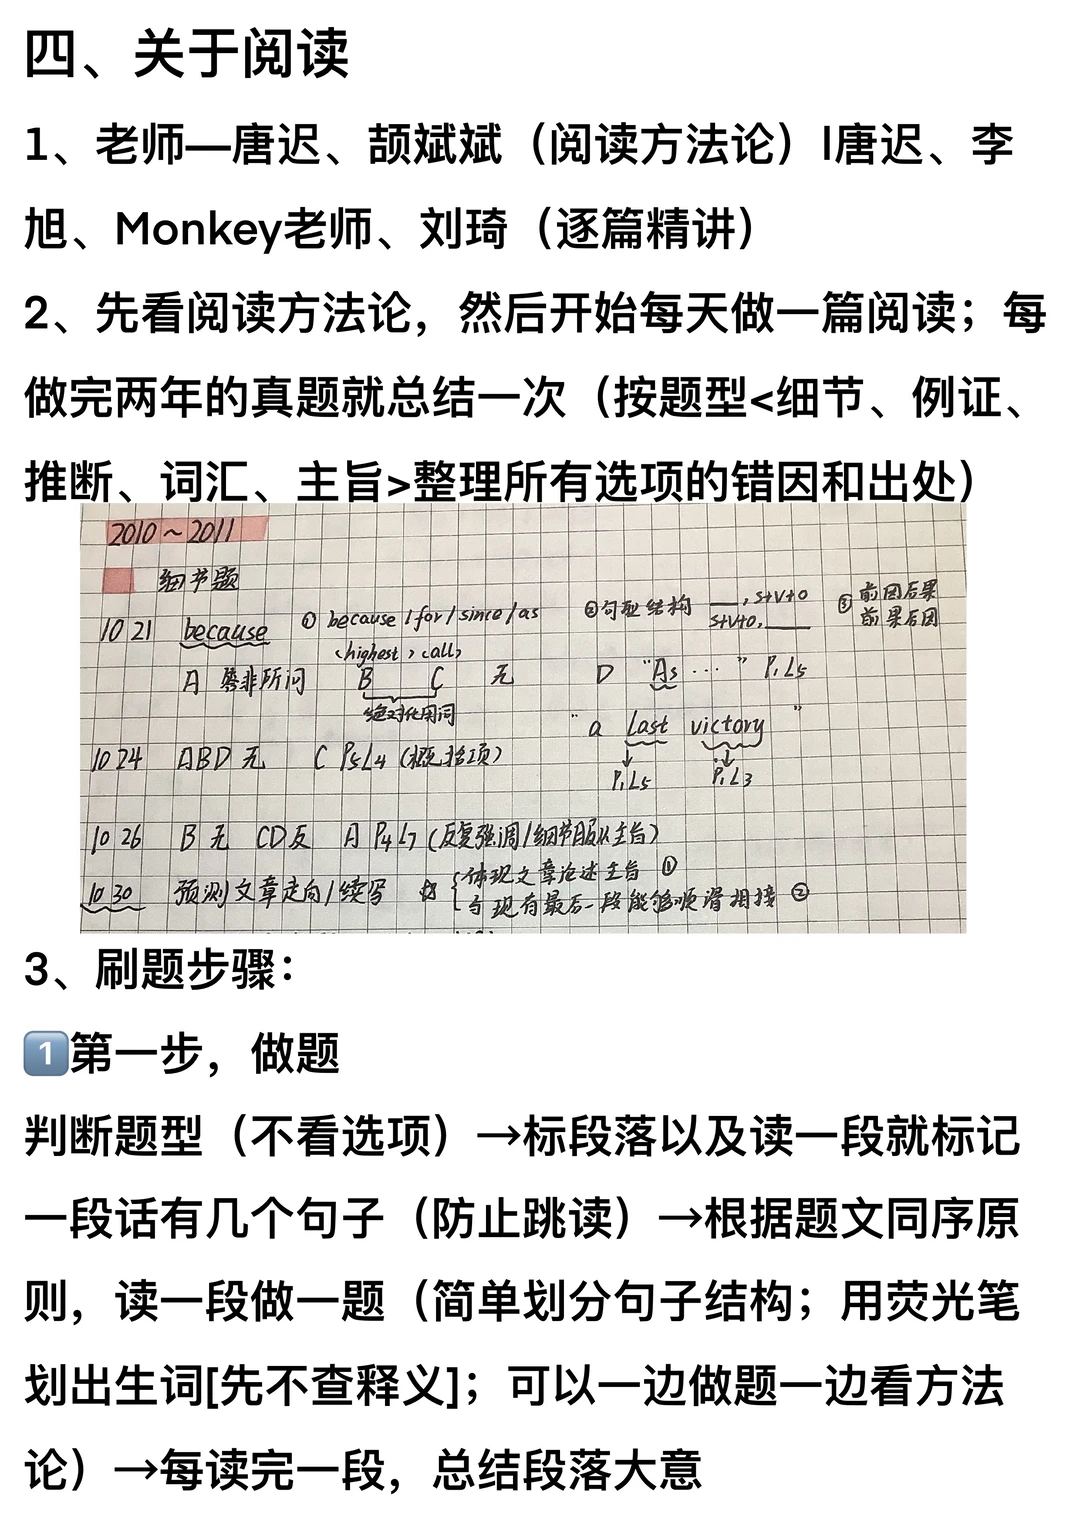 四、关于阅读
1、老师—唐迟、颉斌斌（阅读方法论）|唐迟、李
旭、Monkey老师、刘琦（逐篇精讲）
2、先看阅读方法论，然后开始每天做一篇阅读；每
做完两年的真题就总结一次（按题型<细节、例证、
推断、词汇、主旨>整理所有选项的错因和出处）
2010～2011
细节题
10 21 because ① because / for / since / as ②句型结构 __, S+V+O ③ 前因后果
S+V+O, __ 前果后因
<highest> <all>
A 答非所问 B C 无 D "As ..." P1L5
绝对化用词
"a last victory"
10 24 ABD 无 C P5L4 (概括项) P1L5 P1L3
10 26 B 无 CD反 A P4L7 (反复强调/细节服从主旨)
10 30 预测文章走向/续写 体现文章论述主旨 ①
与现有最后一段能够顺滑相接 ②
3、刷题步骤：
1第一步，做题
判断题型（不看选项）→标段落以及读一段就标记
一段话有几个句子（防止跳读）→根据题文同序原
则，读一段做一题（简单划分句子结构；用荧光笔
划出生词[先不查释义]；可以一边做题一边看方法
论）→每读完一段，总结段落大意